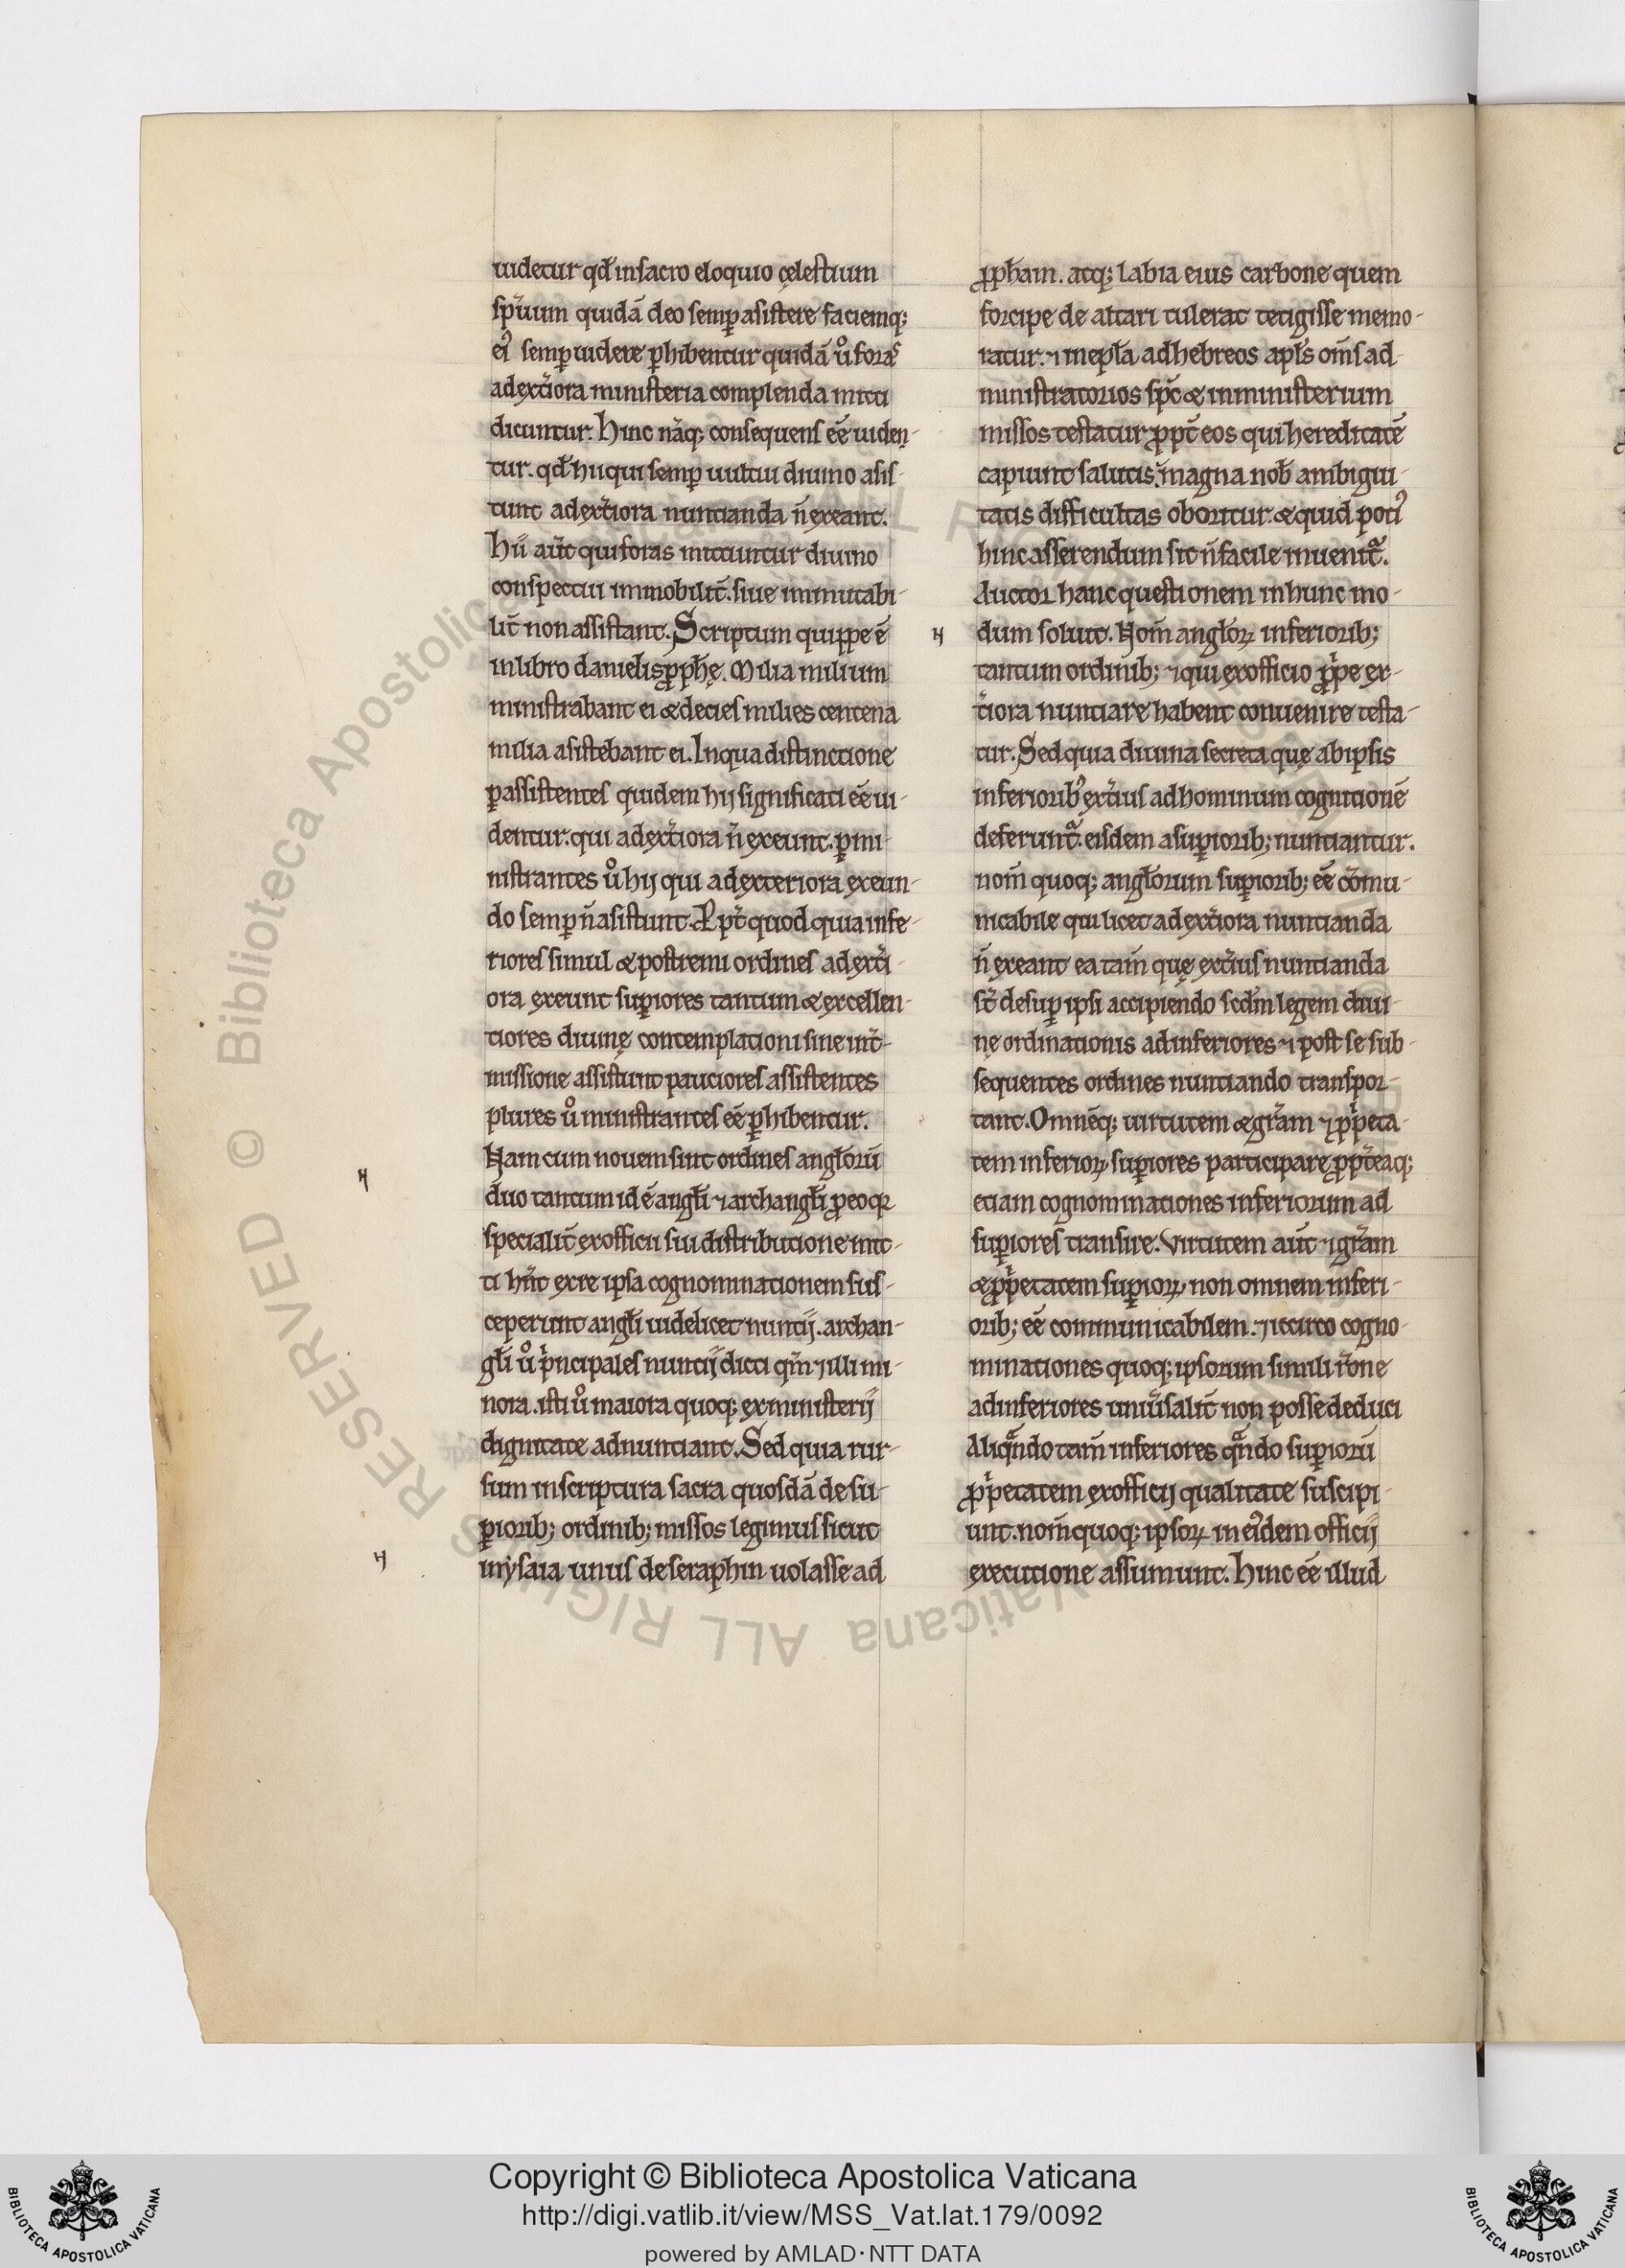 uidetur qđ insacro eloquio cęlestium
sp̄uum quidā deo semꝑ asistere faciemq;
eiꝰ semꝑ uidere ꝑhibentur quidā uͦ foras
adext̄iora ministeria complenda mitti
dicuntur. Hinc nāq; consequens eē uiden-
tur. qđ hii qui semꝑ uultui diuino asis-
tunt adext̄iora nuntianda n̄ exeant.
Hii aūt qui foras mittuntur diuino
conspectui immobilit̄. siue immutabi-
lit̄ non assistant. Scriptum quippe ē
inlibro danielis ꝓpħę. Milia milium
ministrabant ei & decies milies centena
milia asistebant ei. Inqua distinctione
ꝑassistentes quidem hij significati eē ui-
dentur. qui adext̄iora n̄ exeunt. ꝑmi-
nistrantes uͦ hij qui adexteriora exeun-
do semꝑ n̄ asistunt. Ppt̄ quod quia infe-
riores simul & postremi ordines adext̄i-
ora exeunt suꝑiores tantum & excellen-
tiores diuinę contemplationi sine int̄-
missione assistunt pauciores assistentes
plures uͦ ministrantes eē ꝑhibentur.
Nam cum nouem sint ordines angłorū
duo tantum id ē angłi ⁊ archangłi ꝓeoqꝫ
specialit̄ exofficii sui distributione mit-
ti hn̄t exre ipsa cognominationem sus-
ceperunt angłi uidelicet nuntij. archan-
głi uͦ p̍ncipales nuntij dicti qm̄ ⁊ illi mi-
nora. isti uͦ maiora quoq; exministerij
dignitate adnuntiant. Sed quia rur-
sum inscriptura sacra quosdā desu-
ꝑiorib; ordinib; missos legimus sicut
inysaia unus deseraphin uolasse ad
ꝓpħam. atq; labia eius carbone quem
forcipe de altari tulerat tetigisse memo-
ratur. ⁊ inepła adhebreos apłs om̄s ad-
ministratorios sp̄c & inministerium
missos testatur ꝓpt̄ eos qui hereditatē
capiunt salutis. magna nob̄ ambigui-
tatis difficultas oboritur. & quid potiꝰ
hinc asserendum sit n̄ facile inuenit᷒.
Auctor hanc questionem inhunc mo-
dum soluit. Nom̄ angłoꝝ inferiorib;
tantum ordinib; ⁊ qui exofficio ꝓp̍e ex-
t̄iora nuntiare habent conuenire testa-
tur. Sed quia diuina secreta quę abipsis
inferioribꝰ ext̄ius adhominum cognitionē
deferunt᷒. eisdem asuꝑiorib; nuntiantur.
nom̄ quoq; angłorum suꝑiorib; eē cōmu-
nicabile qui licet adext̄iora nuntianda
n̄ exeant ea tam̄ quę ext̄ius nuntianda
st̄ desuꝑ ipsi accipiendo scđm legem diui-
nę ordinationis adinferiores ⁊ post se sub-
sequentes ordines nuntiando transpor-
tant. Omnēq; uirtutem & gr̄am ⁊ ꝓp̍eta-
tem inferioꝝ suꝑiores participare ꝓpt̄eaq;
etiam cognominationes inferiorum ad
suꝑiores transire. Virtutem aūt ⁊ gr̄am
& ꝓp̍etatem suꝑioꝝ non omnem inferi-
orib; eē communicabilem. ⁊ iccirco cogno-
minationes quoq; ipsorum simili r̄one
adinferiores uniu̅salit̄ non posse deduci
Aliqn̄do tam̄ inferiores qn̄do suꝑiorū
ꝓp̍etatem exofficij qualitate suscipi-
unt. nom̄ quoq; ipsoꝝ in eiꝰdem officij
executione assumunt. Hinc eē illud
Copyright © Biblioteca Apostolica Vaticana
http://digi.vatlib.it/view/MSS_Vat.lat.179/0092
powered by AMLAD·NTT DATA
BIBLIOTECA APOSTOLICA VATICANA
BIBLIOTECA APOSTOLICA VATICANA